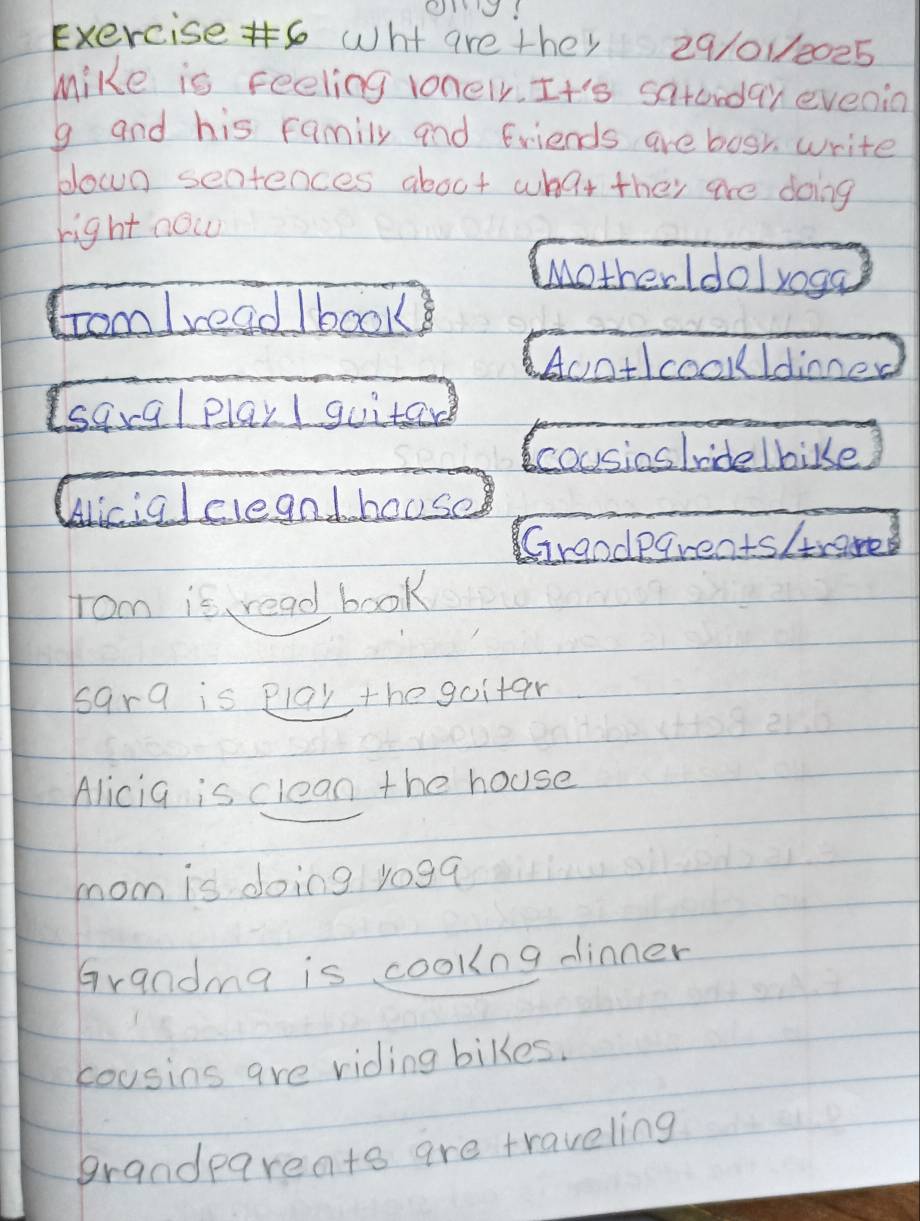 Exercise #6 Wht are they 29/01/2025
Mike is Feeling lonely. It's saturday evenin
g and his Family and Friends are busy. write
down sentences about what they are doing
right now
Mother/do/yoga
Tom/read/book
Aunt/cook/dinner
sara/play/guitar
cousins/ride/bike
Alicia/clean/house
Grandparents/
Tom is read book
sara is play the guitar
Alicia is clean the house
mom is doing yoga
Grandma is cookng dinner
cousins are riding bikes.
grandparents are traveling